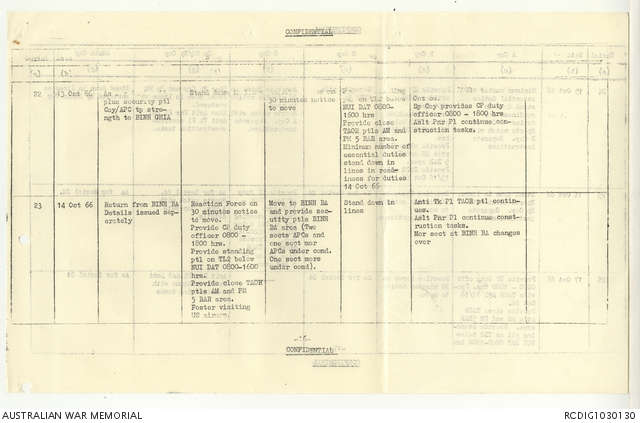 CONFIDENTIAL
(a) (b) (c) (d) (e) (f) (g)
22
13 Oct 66
plus security ptl
Coy/APC tp stre-
ngth to BINH GHIA
Stand
on
30 minutes notice
to move
ptl on TL2 below
NUI DAT 0800-
1600 hrs
Provide close
TAOR ptls AM and
PM 5 RAR area.
Minimum number of
essential duties
stand down in
lines in read-
iness for duties
14 Oct 66
Oct 66.
Sp Coy provides CP duty
officer 0800 - 1800 hrs
Aslt Pnr Pl continue con-
struction tasks.
23
14 Oct 66
Return from BINH BA
Details issued sep-
arately
Reaction Force on
30 minutes notice
to move.
Provide CP duty
officer 0800 -
1800 hrs.
Provide standing
ptl on TL2 below
NUI DAT 0800-1600
hrs.
Provide close TAOR
ptls AM and PM
5 RAR area.
Foster visiting
US airmen.
Move to BINH BA
and provide sec-
urity ptls BINH
BA area (Two
sects APCs and
one sect mor
APCs under comd.
One sect mors
under comd).
Stand down in
lines
Anti Tk Pl TAOR ptl contin-
ues.
Aslt Pnr Pl continue const-
ruction tasks.
Mor sect at BINH BA changes
over
CONFIDENTIAL
AUSTRALIAN WAR MEMORIAL
RCDIG1030130